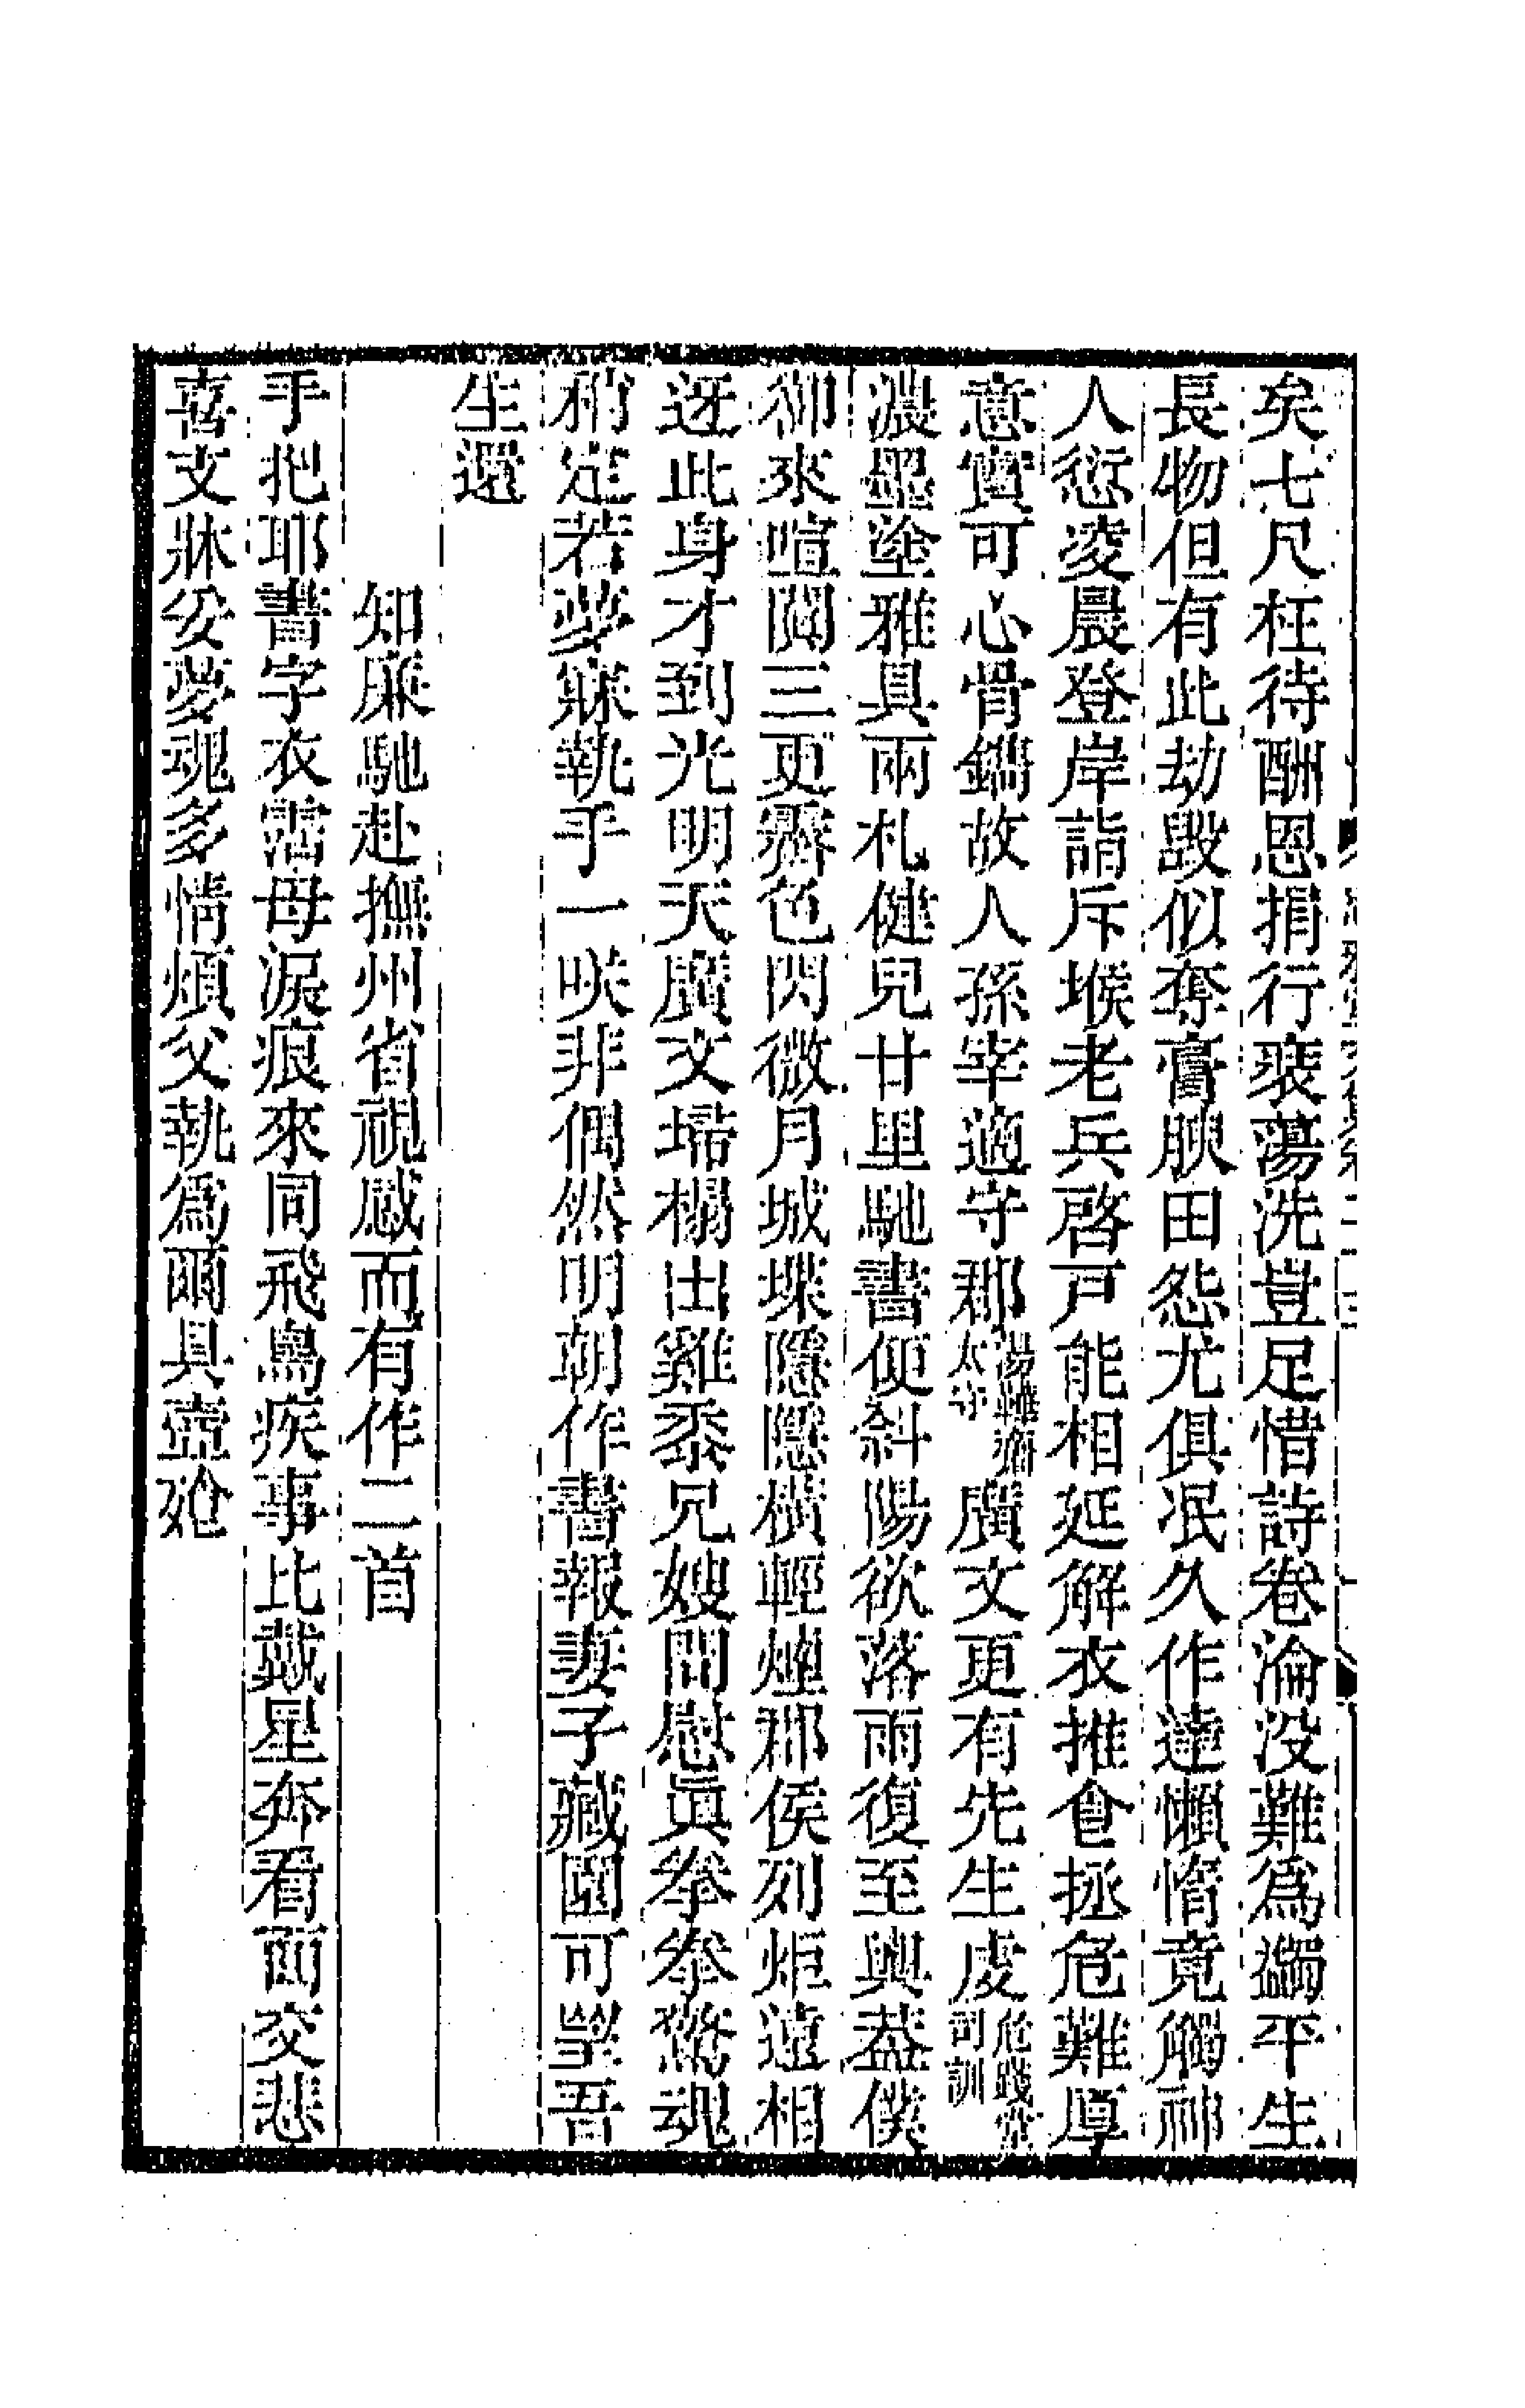 矣七尺枉待酬恩捐行裘蕩洗豈足惜詩卷淪没難爲蠲平生
長物但有此劫毀似奪膏腴田怨尤俱泯久作達懶惰竟觸神
人愆凌晨登岸詣斥堠老兵啓戸能相延解衣推食拯危難厚
意實可心骨鐫故人孫宰適守郡湯𫎇齋太守廣文更有先生虔危踐堂司訓
濃墨塗雅具兩札健兒廿里馳書便斜陽欲落雨復至輿蓋僕
御來喧闐三更霽色閃微月城堞隱隱横輕煙郡侯列炬遠相
迓此身才到光明天廣文埽榻出雞黍兄嫂問慰眞拳拳驚魂
稍定若夢寐執手一咲非偶然明朝作書報妻子藏園可望吾
生還
知廉馳赴撫州省視感而有作二首
手把耶書字衣霑母淚痕來同飛鳥疾事比戴星奔看面交悲
喜支牀妥夢魂多情煩父執爲爾具壺飱